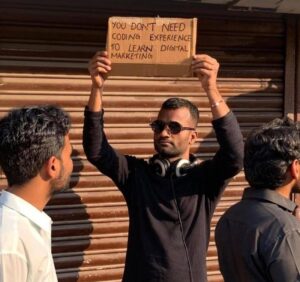 YOU DON'T NEED
CODING EXPERIENCE
TO LEARN DIGITAL
MARKETING